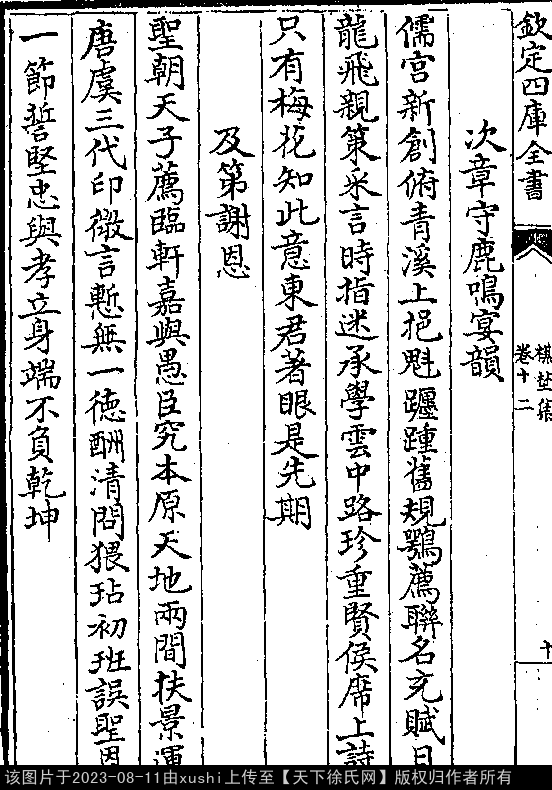 欽定四庫全書
楳埜集
卷十二
十
次章守鹿鳴宴韻
儒宫新創俯青溪上挹魁躔踵舊規鶚薦聯名充賦日
龍飛親策采言時指迷承學雲中路珍重賢侯席上詩
只有梅花知此意東君著眼是先期
及第謝恩
聖朝天子薦臨軒嘉與愚臣究本原天地兩間扶景運
唐虞三代印微言慙無一德酬清問猥玷初班誤聖恩
一節誓堅忠與孝立身端不負乾坤
该图片于2023-08-11由xushi上传至【天下徐氏网】版权归作者所有